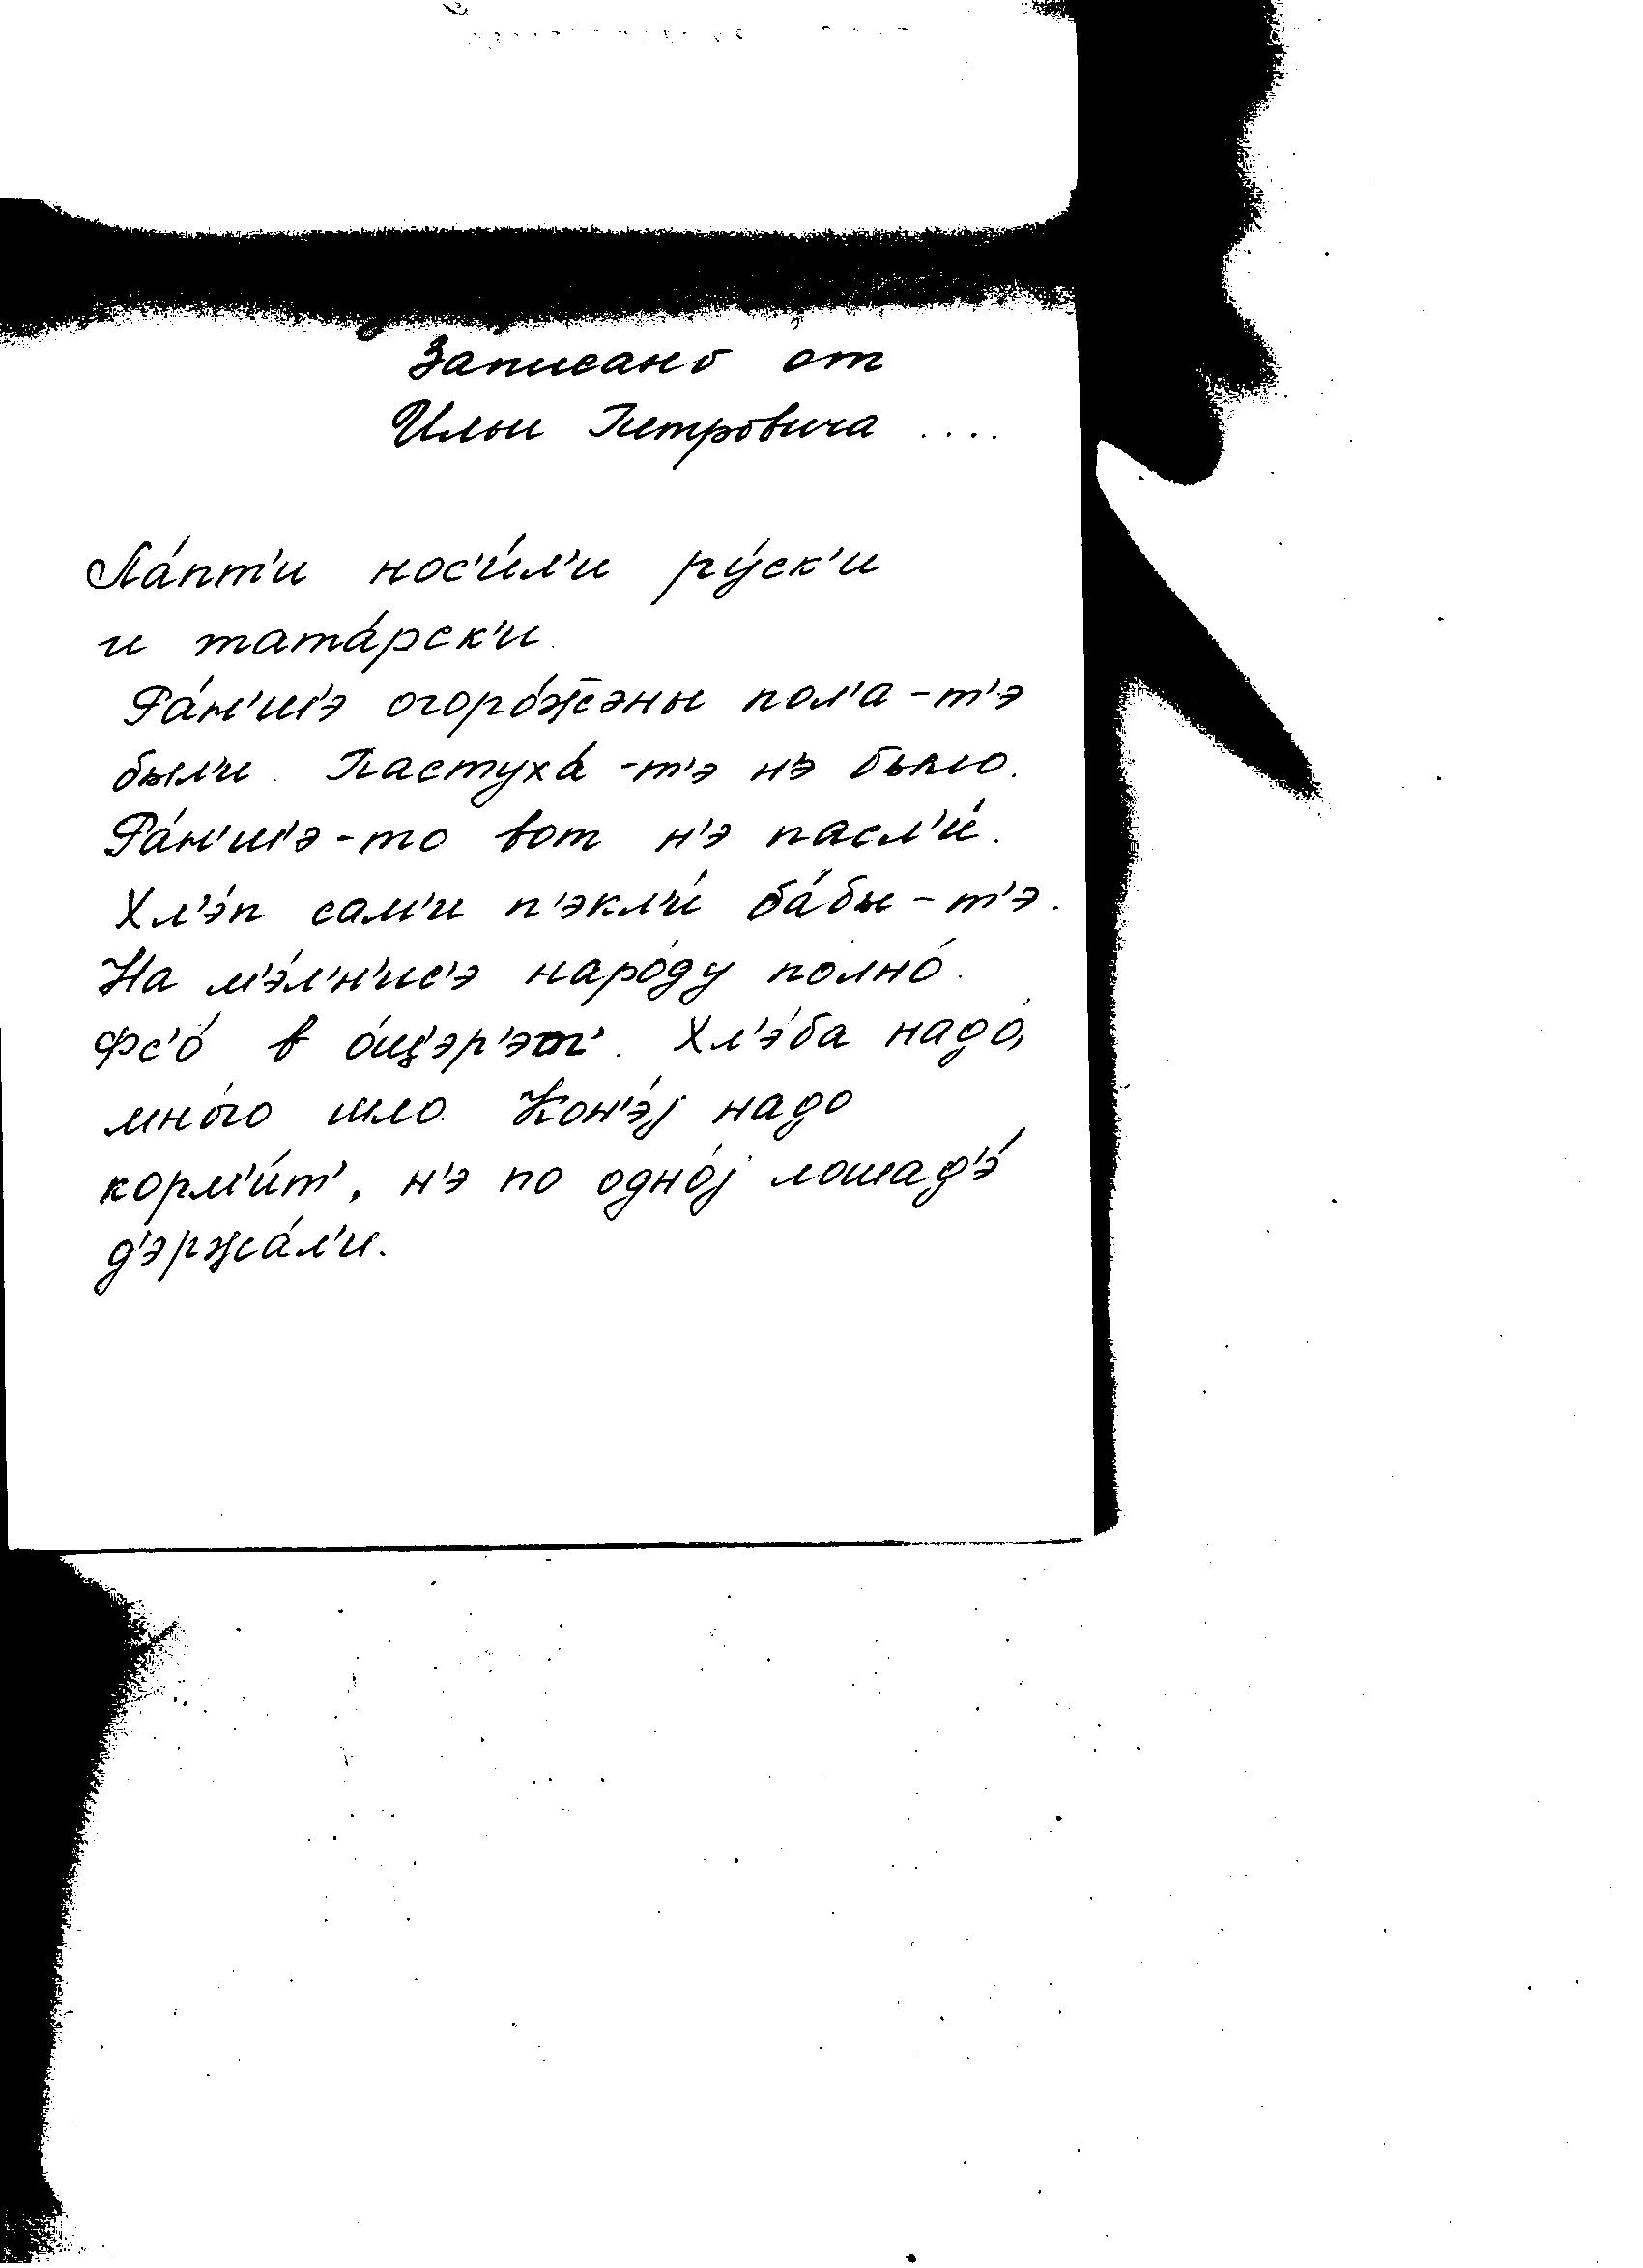 Записано от
Ильи Петровича ....
Ла́пт'и нос'и́л'и ру́ск'и
и тата́рск'и.
Ра́н'ш'э огоро́жэны пол'а-т'э
был'и. Пастуха́-т'э нэ было.
Ра́н'ш'э-то вот н'э пасл'и́.
Хл'э́п сам'и п'экл'и́ ба́бы-т'э.
На м'э́л'н'ис'э наро́ду полно́.
Фс'о́ в о́ц'эр'эт'. Хл'э́ба надо́,
мно́го шло. Кон'э́j надо
корм'и́т', н'э по одно́j лошад'э́
д'эржа́л'и.